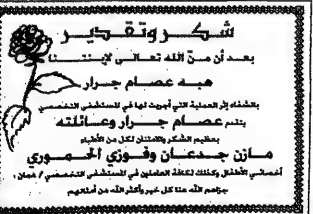 شكر وتقدير
بعد أن منّ الله تعالى لإبنتنا
هبه عصام جرار
بالشفاء إثر العملية التي أجريت لها في المستشفى التخصصي
يتقدم عصام جرار وعائلته
بعظيم الشكر والامتنان لكل من الأطباء
مازن جدعان وفوزي الحموري
أخصائي الأطفال وكذلك لكافة العاملين في المستشفى التخصصي / عمان ،
جزاهم الله عنا كل خير وأكثر الله من أمثالهم